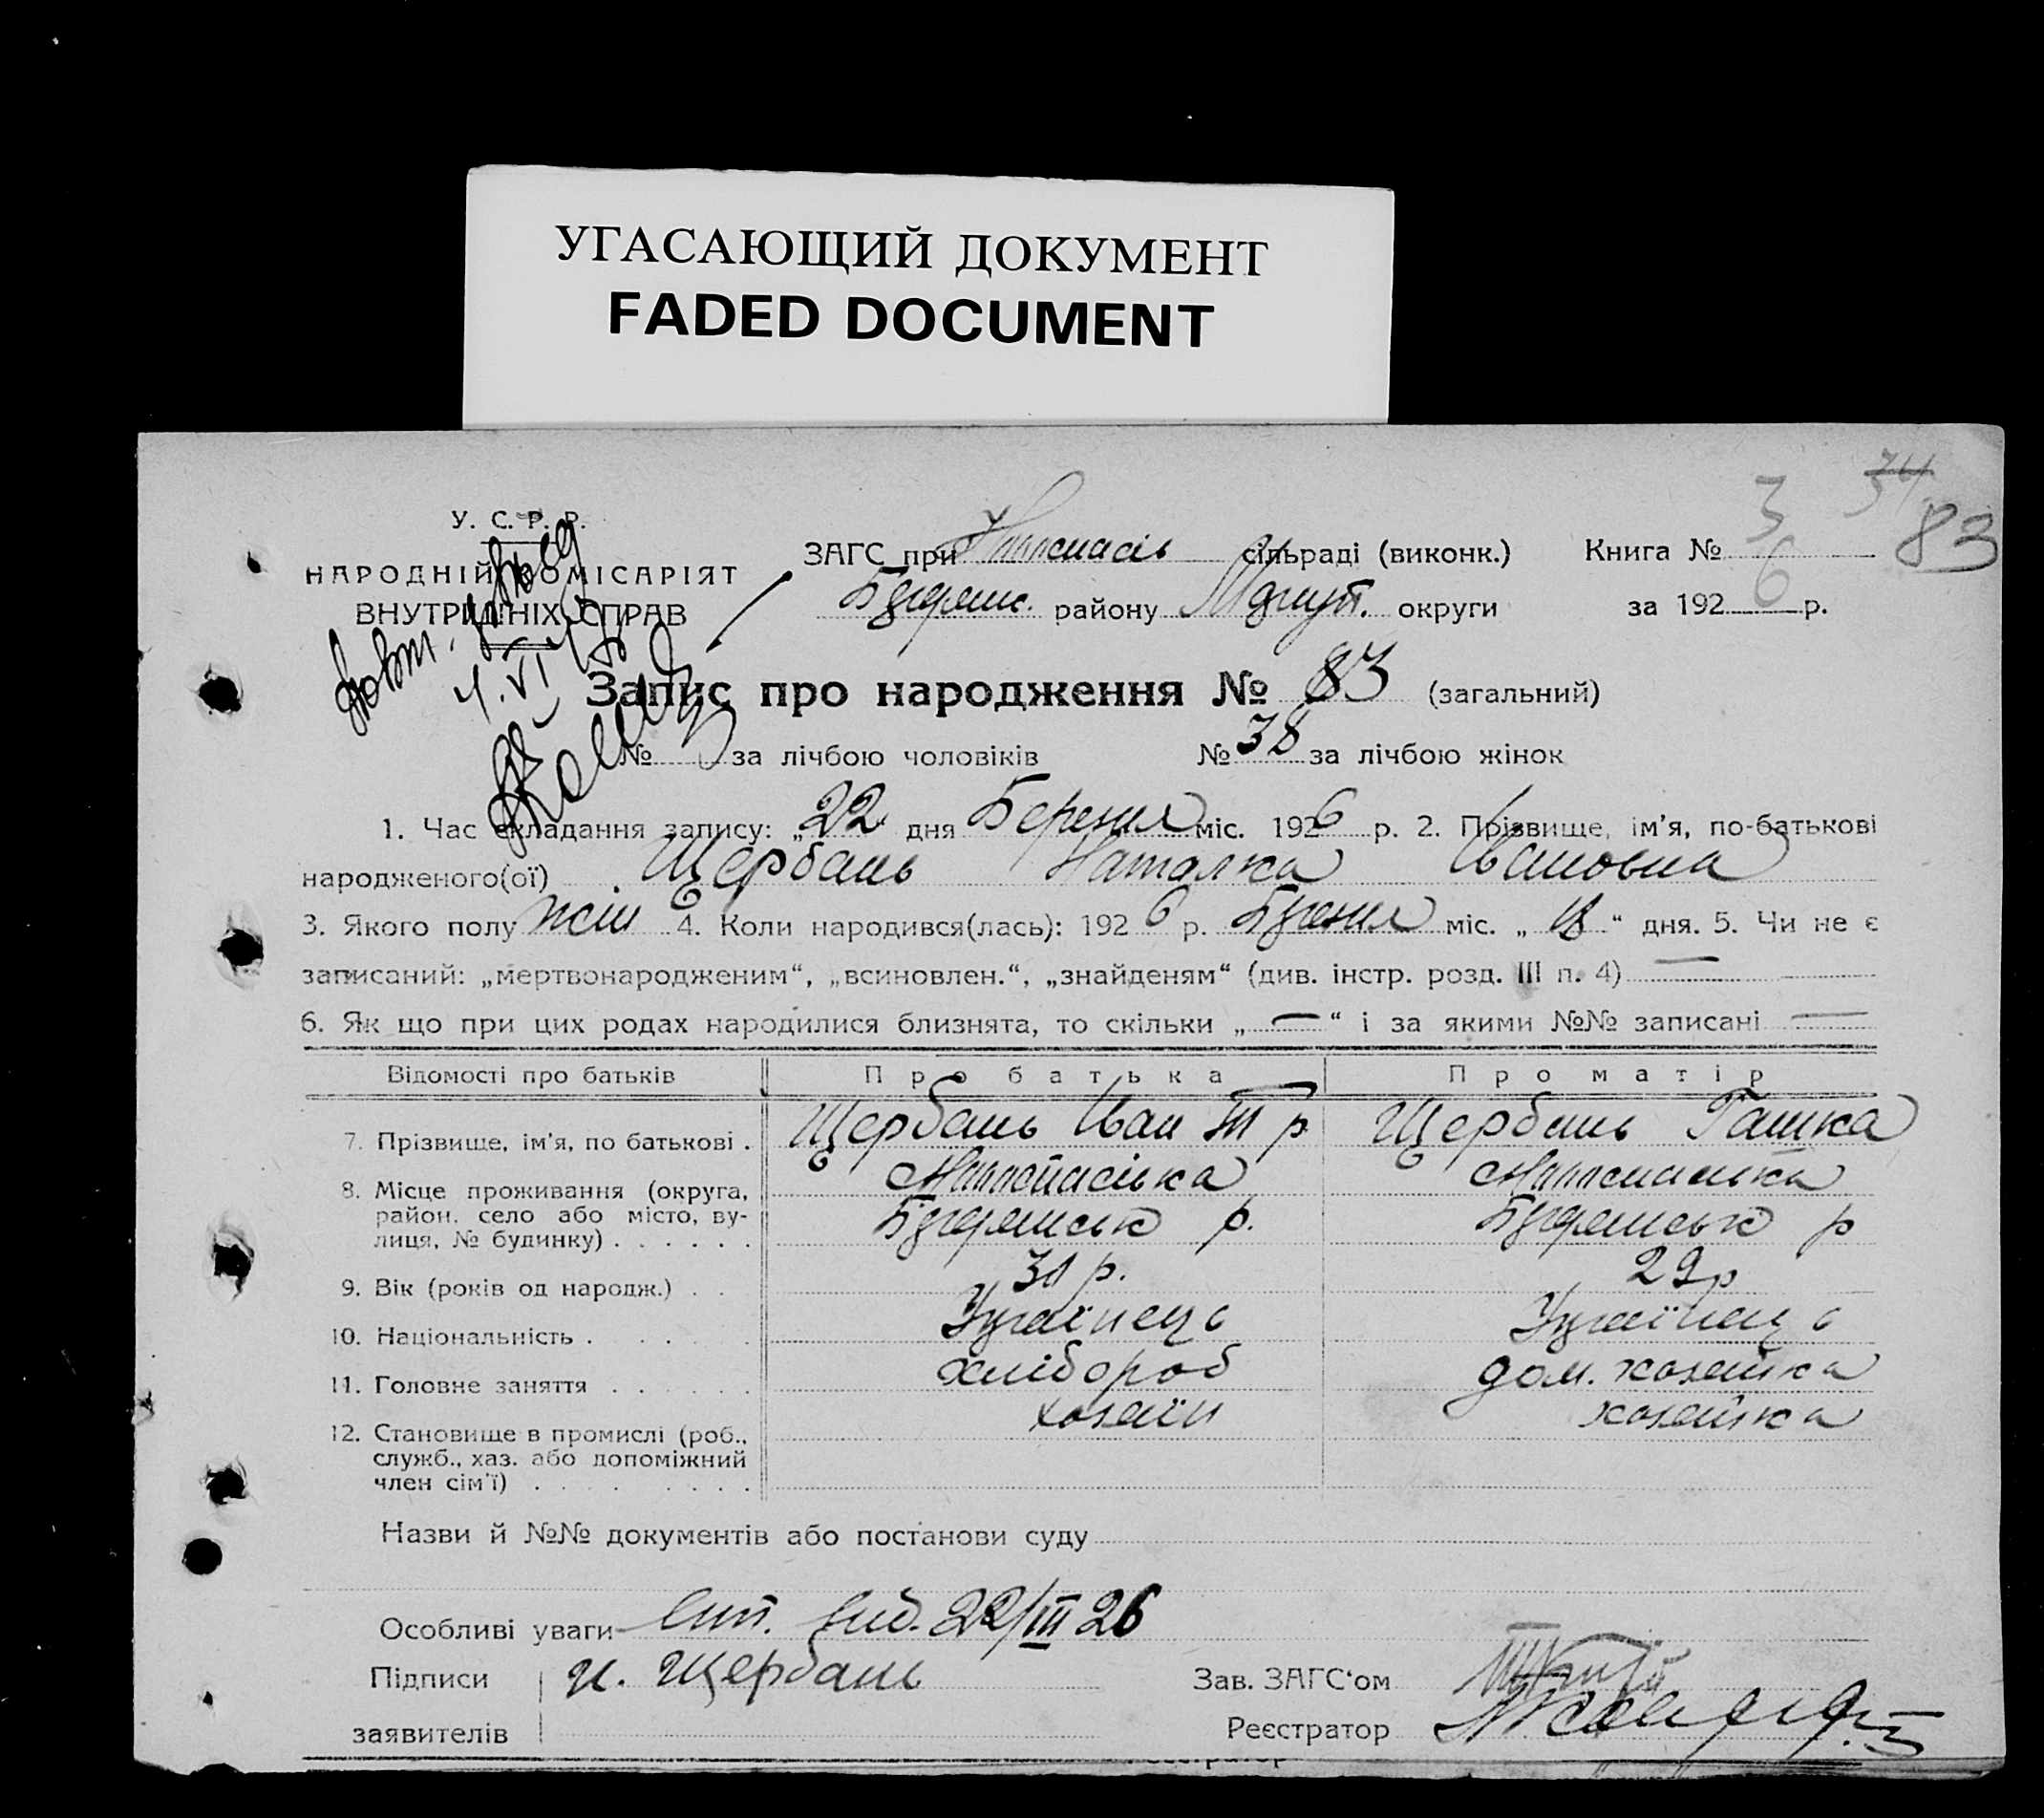 УГАСАЮЩИЙ ДОКУМЕНТ
FADED DOCUMENT
34
3 83
У. С. Р. Р.
НАРОДНІЙ КОМІСАРІЯТ
ВНУТРІШНІХ СПРАВ
4. VI
ЗАГС при сільраді (виконк.) Книга №
району округи за 1926 р.
Запис про народження № 83 (загальний)
№ за лічбою чоловіків № 38 за лічбою жінок
1. Час складання запису: „22 дня Березня міс. 1926 р. 2. Прізвище, ім'я, по-батькові
народженого(ої) Щербань Наталка Ивановна
3. Якого полу жін 4. Коли народився(лась): 1926 р. Березня міс. „ “ дня. 5. Чи не є
записаний: „мертвонародженим“, „всиновлен.“, „знайденям“ (див. інстр. розд. III п. 4) —
6. Як що при цих родах народилися близнята, то скільки „ — “ і за якими №№ записані —
Відомості про батьків Про батька Про матір
7. Прізвище, ім'я, по батькові . Щербань Иван р Щербань Гашка
8. Місце проживання (округа,
район. село або місто, ву-
лиця, № будинку) . . . . . . р. р
9. Вік (років од народж.) . . 31 р. 29 р
10. Національність . . . . . Українець Українець
11. Головне заняття . . . . . . хлібороб дом. хозяйка
хозяїн хозяйка
12. Становище в промислі (роб.,
служб., хаз. або допоміжний
член сім'ї) . . . . . . . .
Назви й №№ документів або постанови суду
Особливі уваги вид. 22/III 26
Підписи И. Щербань Зав. ЗАГС'ом
заявителів Реєстратор